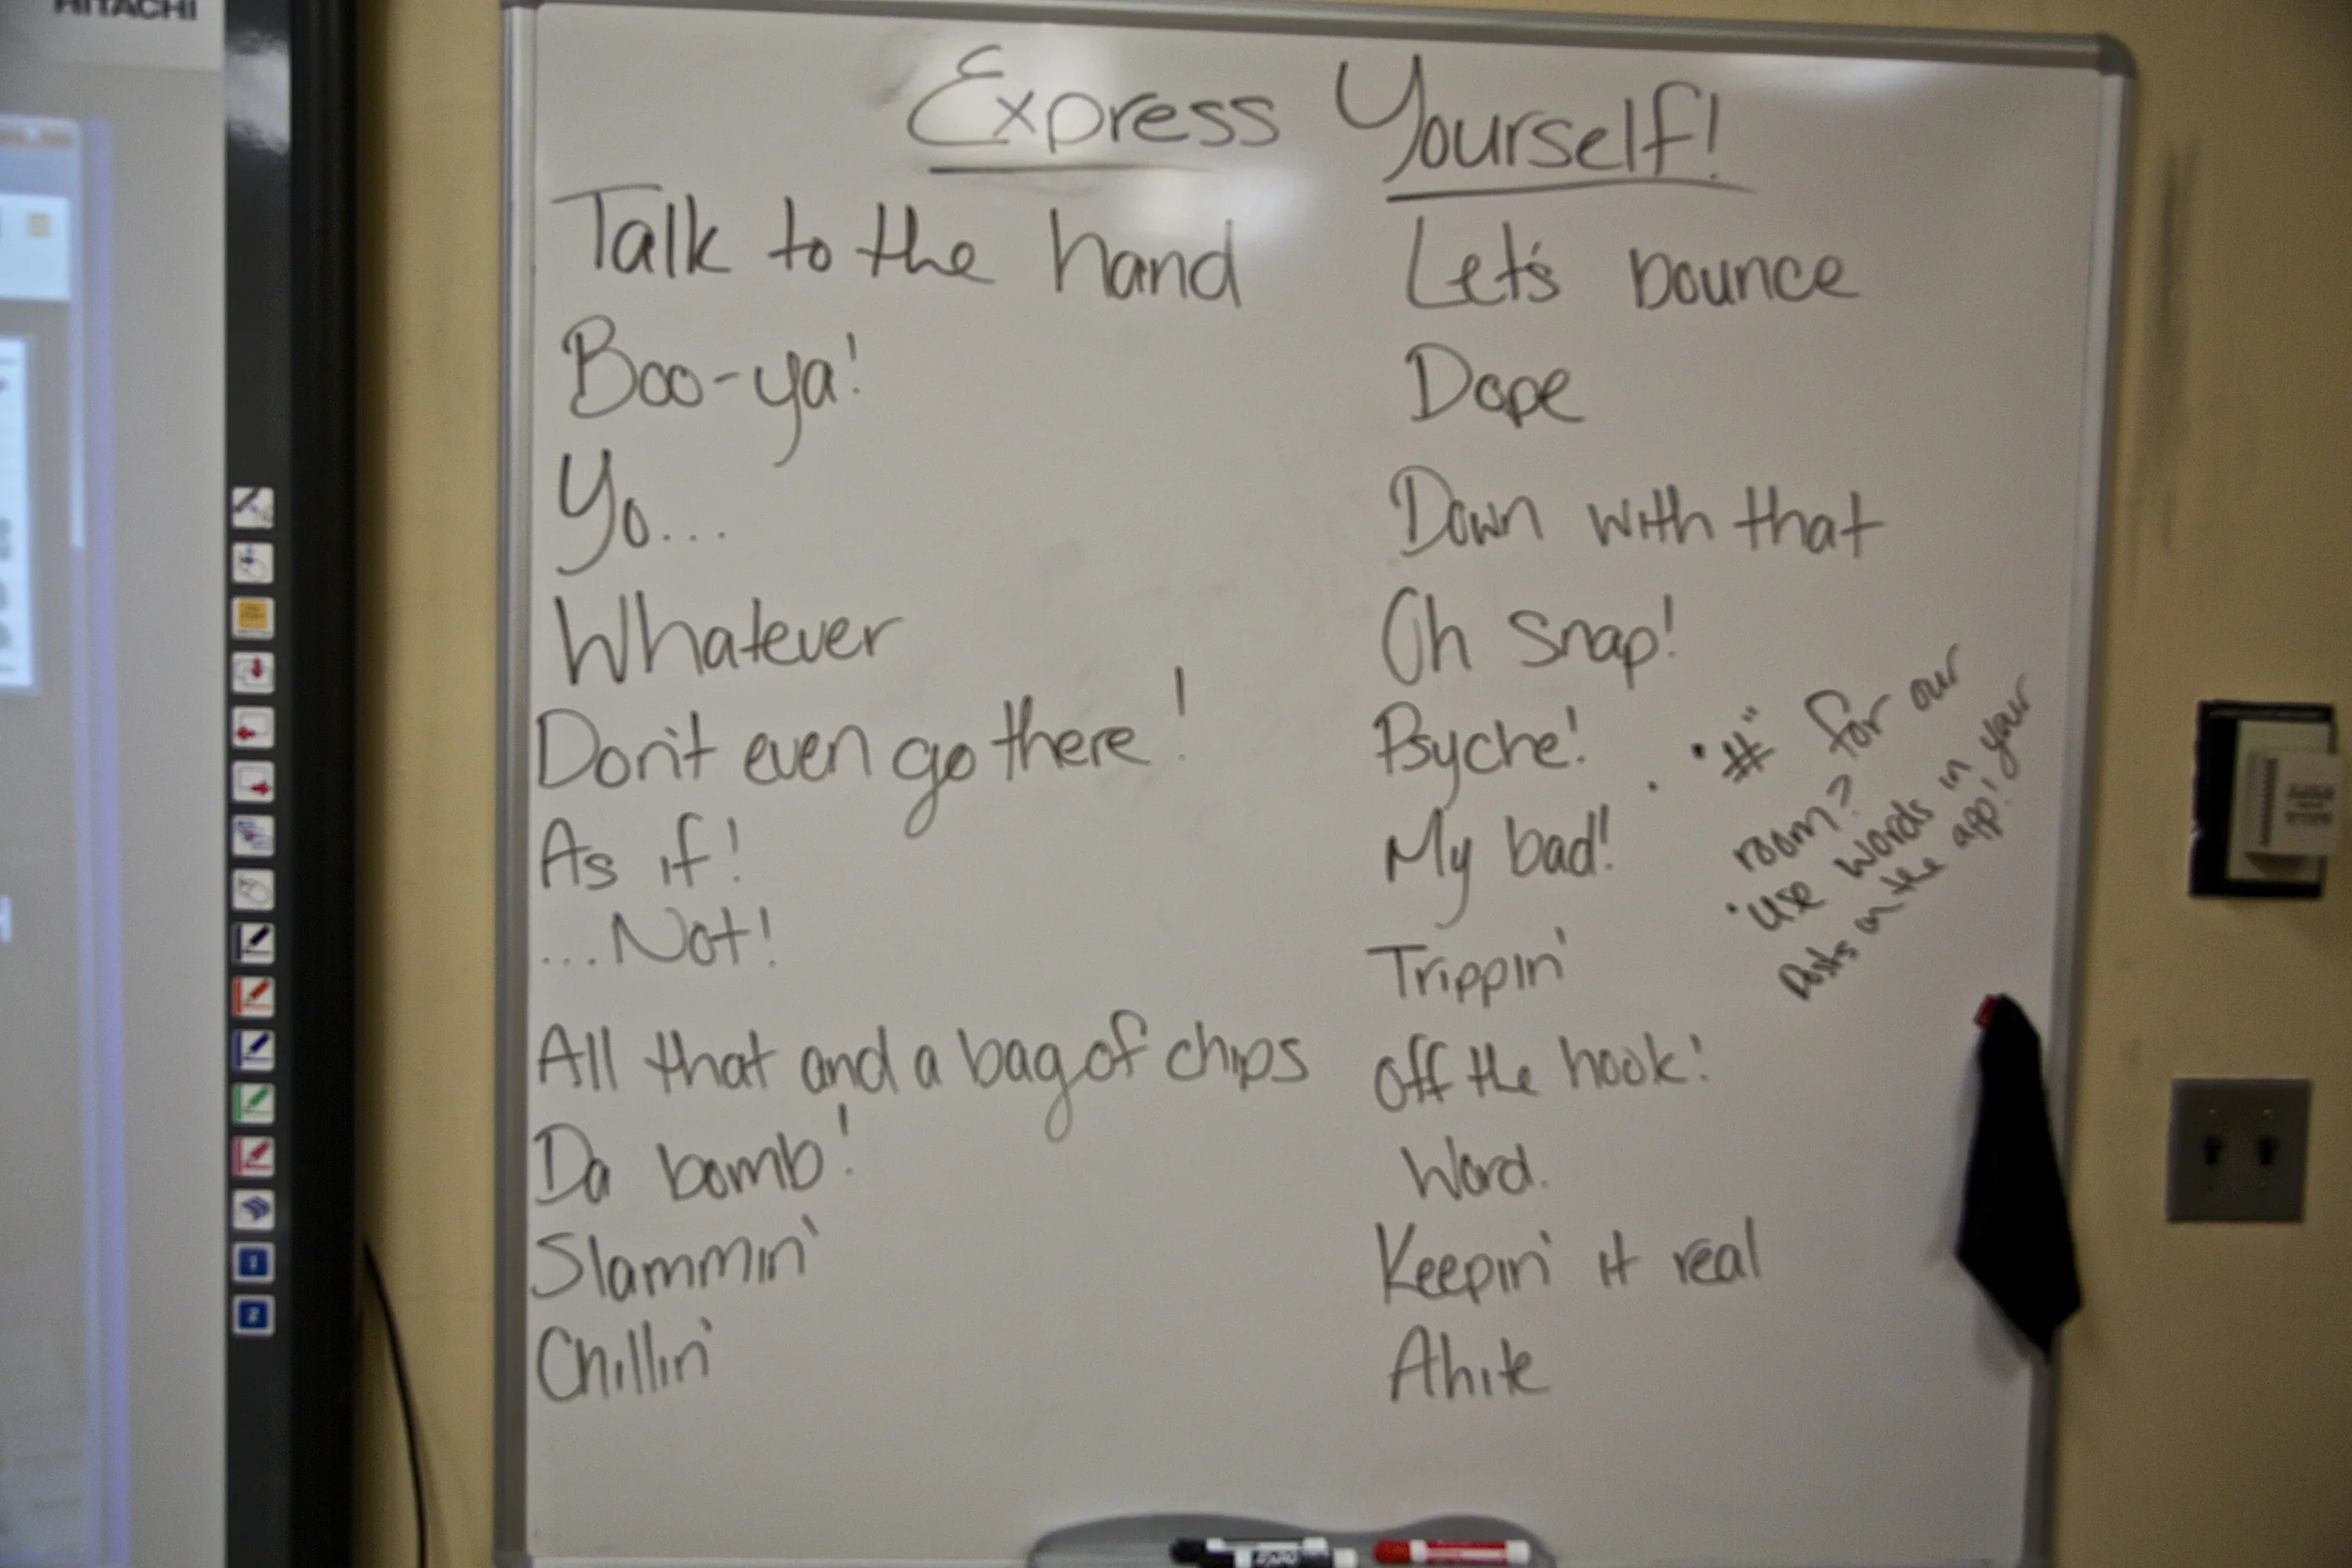 HITACHI
Express Yourself!
Talk to the hand
Boo-ya!
Yo...
Whatever
Don't even go there!
As if!
...Not!
All that and a bag of chips
Da bomb!
Slammin'
Chillin'
Let's bounce
Dope
Down with that
Oh snap!
Psyche!
My bad!
Trippin'
Off the hook!
Word.
Keepin' it real
Ahite
• "#" for our
room?
• Use words in your
posts on the app!
1
2